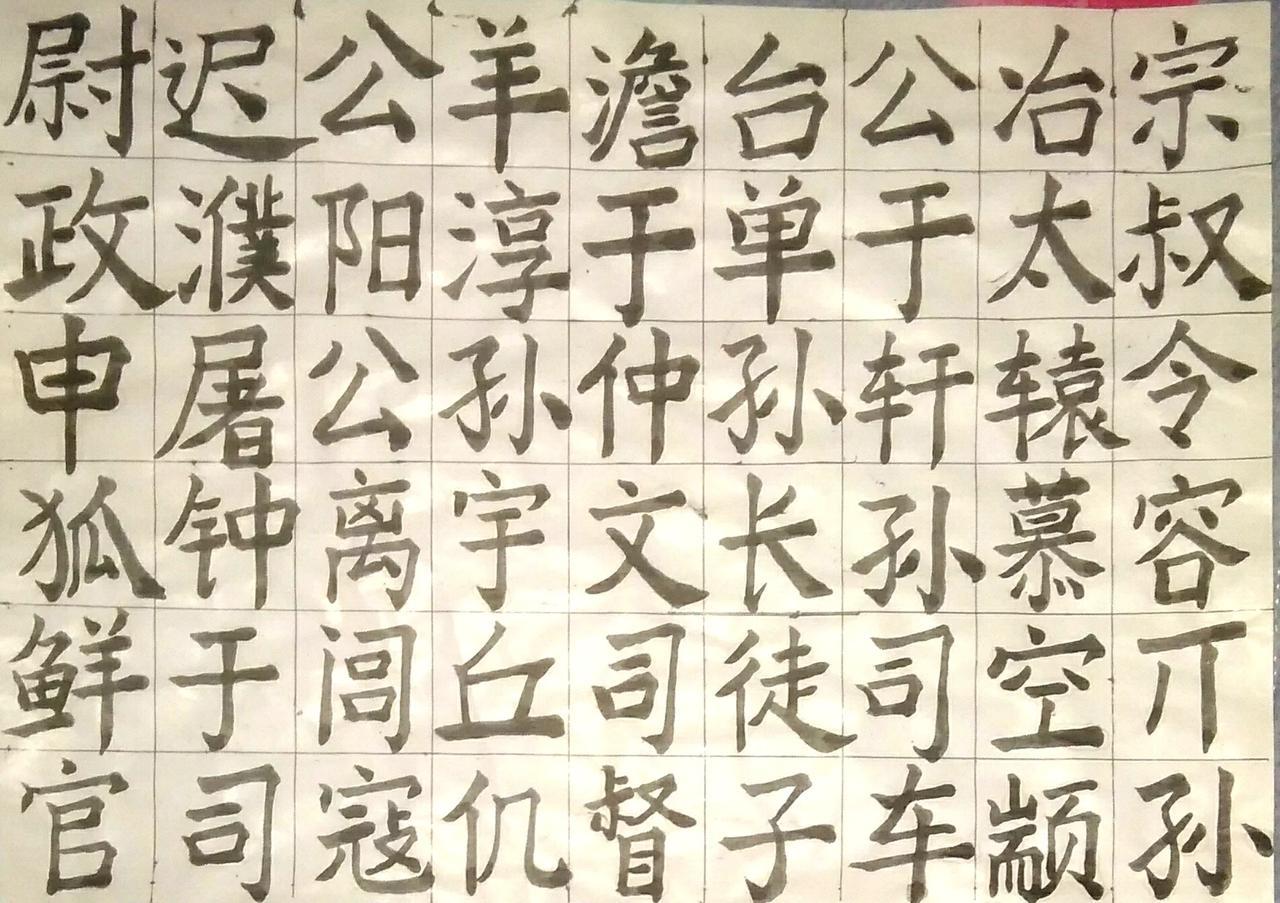 尉迟公羊澹台公冶宗
政濮阳淳于单于太叔
申屠公孙仲孙轩辕令
狐钟离宇文长孙慕容
鲜于闾丘司徒司空亓
官司寇仉督子车颛孙